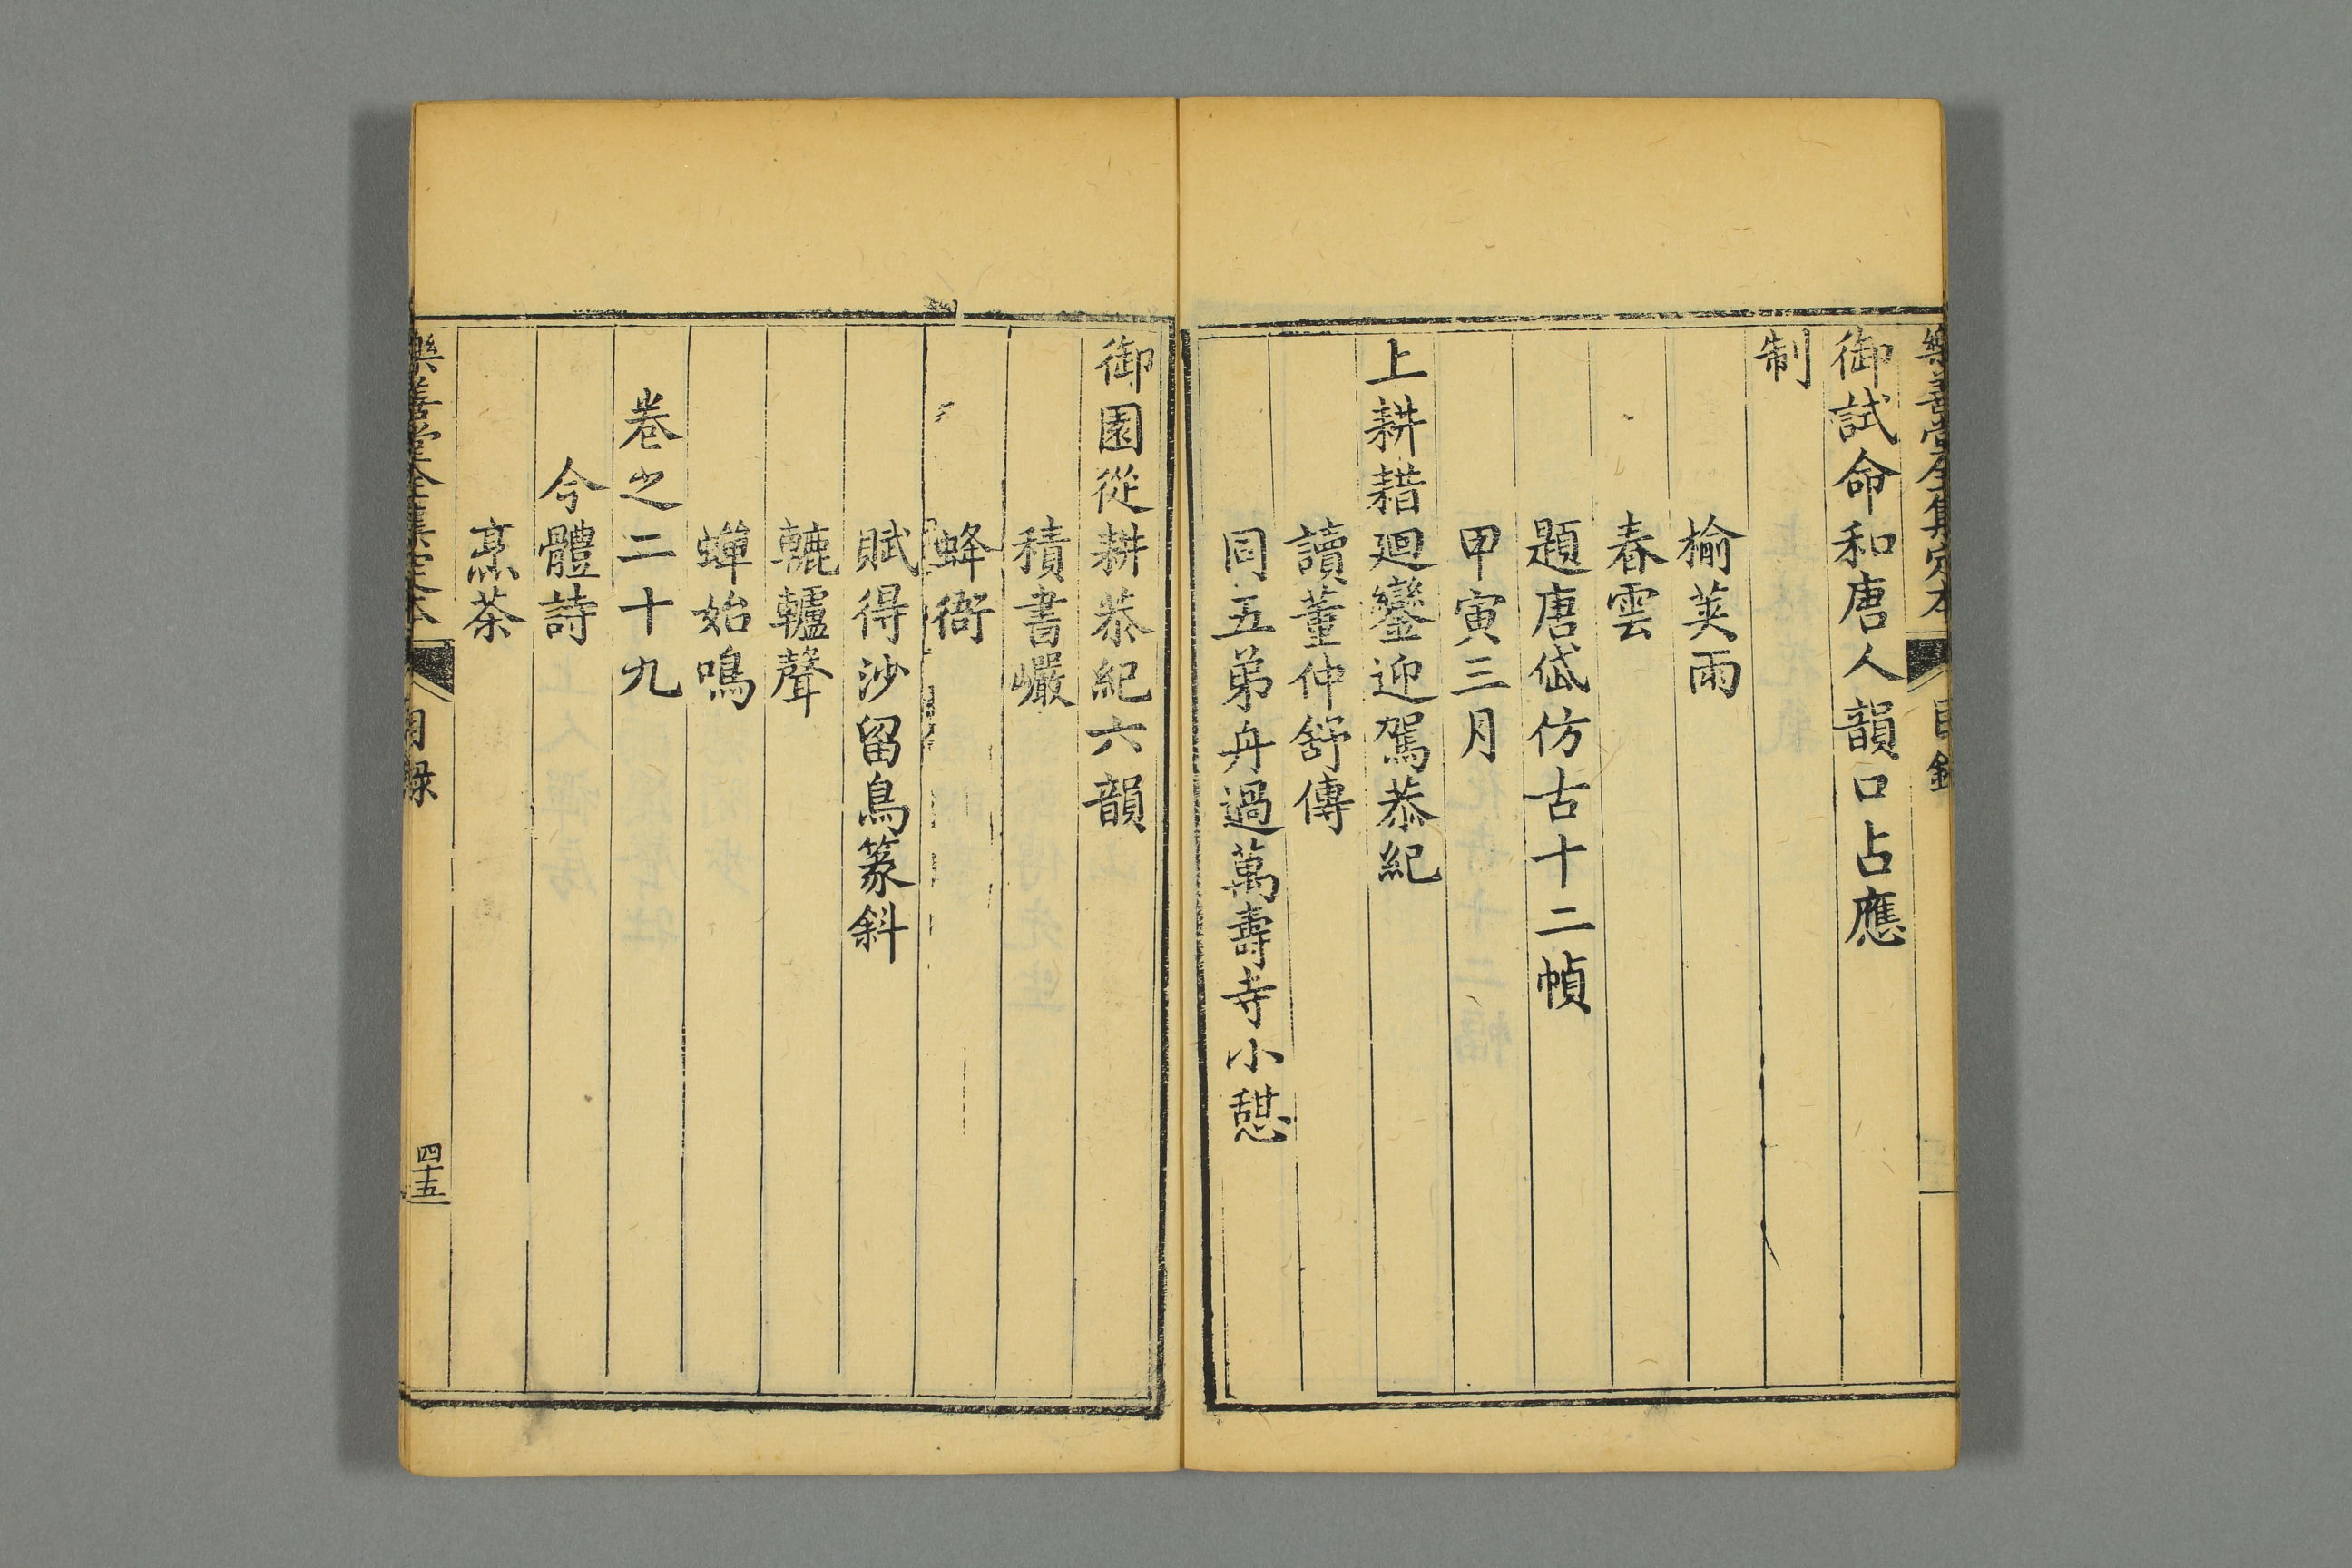 樂善堂全集定本 目錄
御試命和唐人韻口占應
制
榆莢雨
春雲
題唐岱仿古十二幀
甲寅三月
上耕耤迴鑾迎駕恭紀
讀董仲舒傳
同五弟舟過萬壽寺小憩
御園從耕恭紀六韻
積書巖
蜂衙
賦得沙留鳥篆斜
轆轤聲
蟬始鳴
卷之二十九
今體詩
烹茶
樂善堂全集定本 目錄 四十五